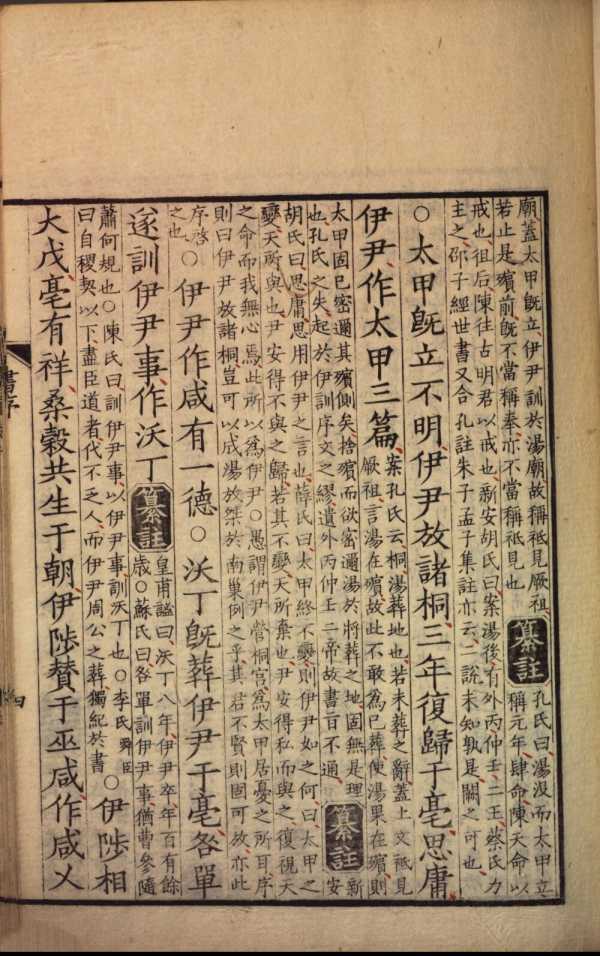 廟蓋太甲旣立伊尹訓於湯廟故稱祗見厥祖
若止是殯前旣不當稱奉亦不當稱祗見也
纂註
孔氏曰湯沒而太甲立
稱元年肆命陳天命以
戒也徂后陳往古明君以戒也新安胡氏曰案湯後有外丙仲壬二王蔡氏力
主之邵子經世書又合孔註朱子孟子集註亦云二說未知孰是闕之可也
○太甲旣立不明伊尹放諸桐三年復歸于亳思庸
伊尹作太甲三篇
案孔氏云桐湯葬地也若未葬之辭蓋上文祗見
厥祖言湯在殯故此不敢爲已葬使湯果在殯則
太甲固已密邇其殯側矣捨殯而欲密邇湯於將葬之地固無是理
也孔氏之失起於伊訓序文之繆遺外丙仲壬二帝故書旨不通
纂註
新
安
胡氏曰思庸思用伊尹之言也薛氏曰太甲終不變則伊尹如之何曰太甲之
變天所與也尹安得不與之歸若其不變天所棄也尹安得私而與之復視天
之命而我無心焉此所以爲伊尹○愚謂伊尹營桐宮爲太甲居憂之所耳序
則曰伊尹放諸桐豈可以成湯放桀於南巢例之乎其君不賢則固可放亦此
序啓
之也
○伊尹作咸有一德○沃丁旣葬伊尹于亳咎單
遂訓伊尹事作沃丁
纂註
皇甫謐曰沃丁八年伊尹卒年百有餘
歲○蘇氏曰咎單訓伊尹事猶曹參隨
蕭何規也○陳氏曰訓伊尹事以伊尹事訓沃丁也○李氏舜臣
曰自稷契以下盡臣道者代不乏人而伊尹周公之葬獨紀於書
○伊陟相
大戊亳有祥桑穀共生于朝伊陟贊于巫咸作咸乂
書序